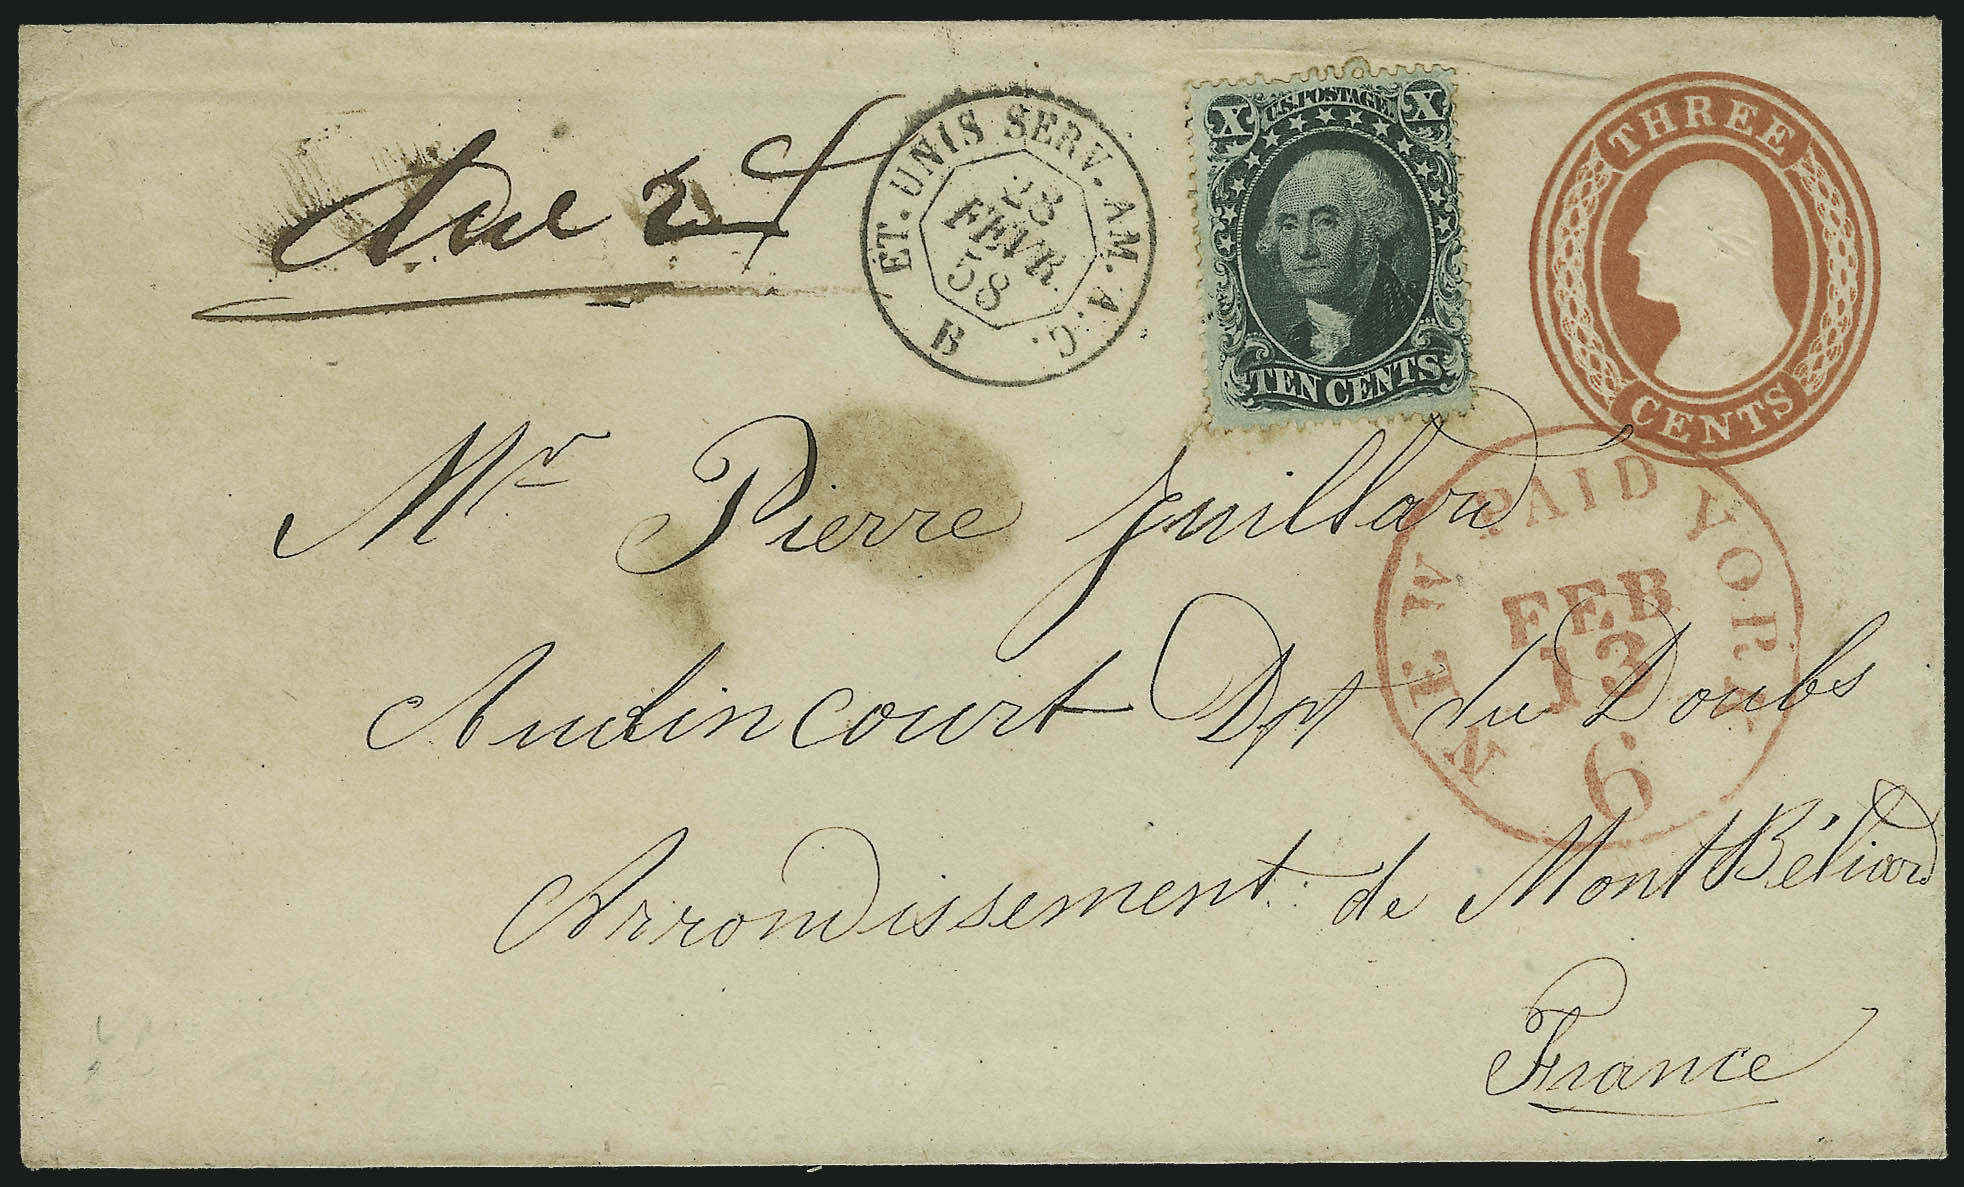 Due 2 cf
ET. UNIS SERV. AM. A. C.
23
FEVR
58
B
X U.S. POSTAGE X
TEN CENTS
THREE
CENTS
Mr Pierre Juillard
Audincourt Dpt du Doubs
Arrondissement de MontBéliard
France
NEW PAID YORK
FEB
13
6